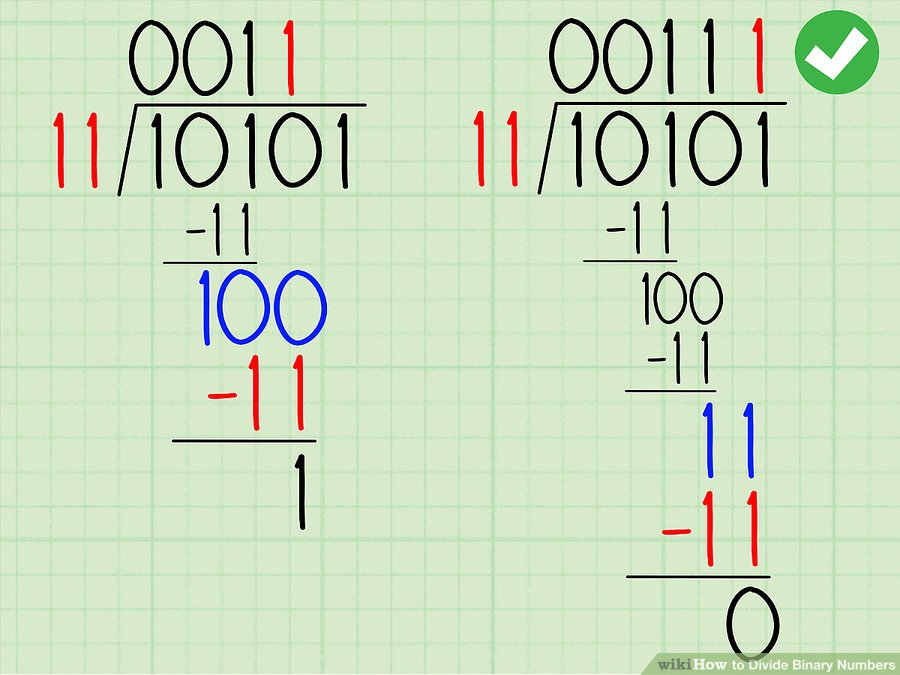 0011
11 10101
-11
100
-11
1
00111
11 10101
-11
100
-11
11
-11
0
wikiHow to Divide Binary Numbers